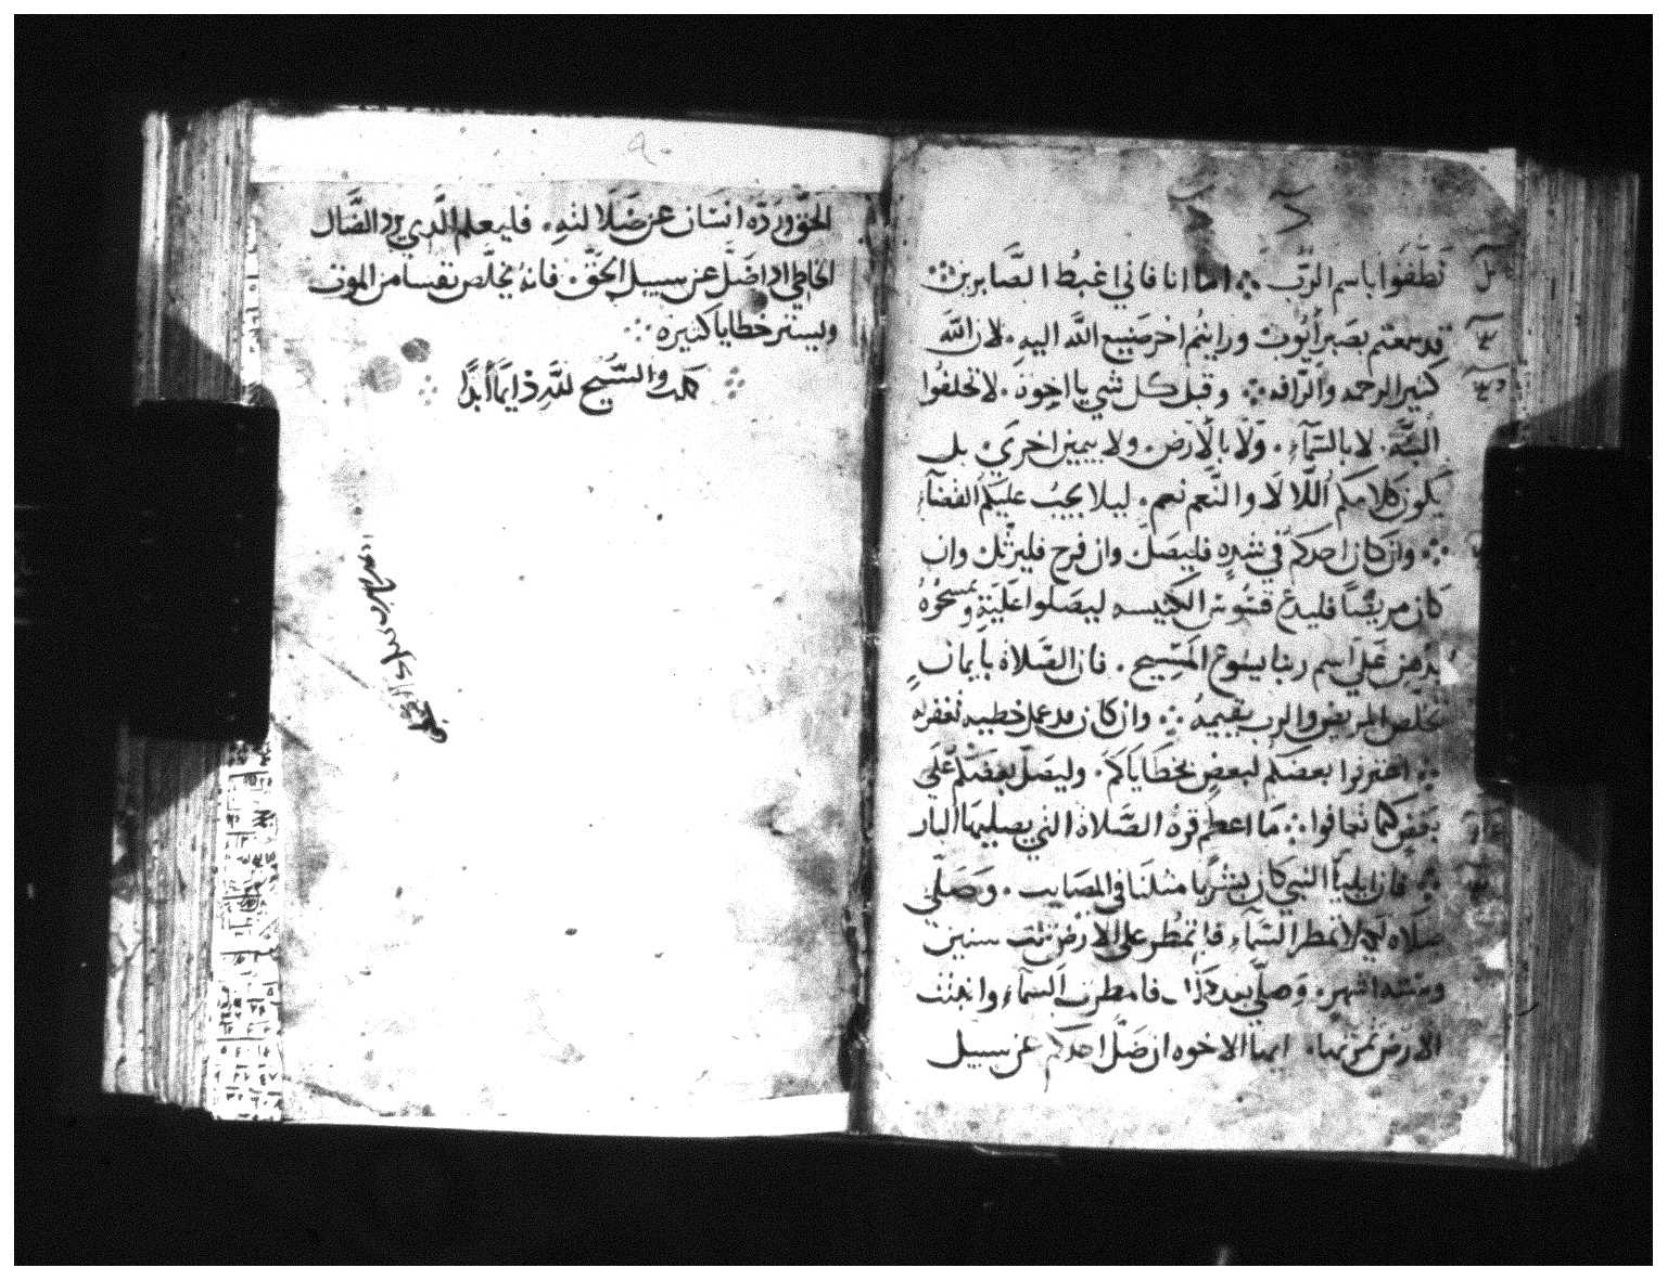 نطقوا باسم الرب ܀ اما انا فاني اغبط الصابرين ܀
قد سمعتم بصبر أيوب ورايتم اخر صنيع الله اليه. لان الله
كثير الرحمه والرافه ܀ وقبل كل شي يا اخوة. لا تحلفوا
البتة. لا بالسمآء. ولا بالارض. ولا بيمين اخرى بل
يكون كلامكم اللا لا والنعم نعم. ليلا يجب عليكم القضآء
܀ وان كان احدكم في شده فليصل وان فرح فليرتل وان
كان مريضا فليدع قسوس الكنيسه ليصلوا عليه ويمسحوه
بدهن على اسم ربنا يسوع المسيح. فان الصلاة بايمان
تخلص المريض والرب يقيمه ܀ وان كان قد عمل خطيه تغفر له
܀ اعترفوا بعضكم لبعض بخطاياكم. وليصل بعضكم على
بعض كما تعافوا ܀ ما اعظم قوة الصلاة التي يصليها البار
܀ فان ايليا النبي كان بشريا مثلنا في المصايب. وصلى
صلاه لا تمطر السمآء فلم تمطر على الارض ثلث سنين
وستة اشهر. وصلى بعد فامطرت السمآء وانبتت
الارض ثمرتها. ايها الاخوه ان ضل احدكم عن سبيل
٩٠
الحق ورده انسان عن ضلالته. فليعلم الذي يرد الضال
الخاطي اذا ضل عن سبيل الحق. فانه يخلص نفسا من الموت
ويستر خطايا كثيره ܀
܀ كملت والتسبيح لله دايما ابدا ܀